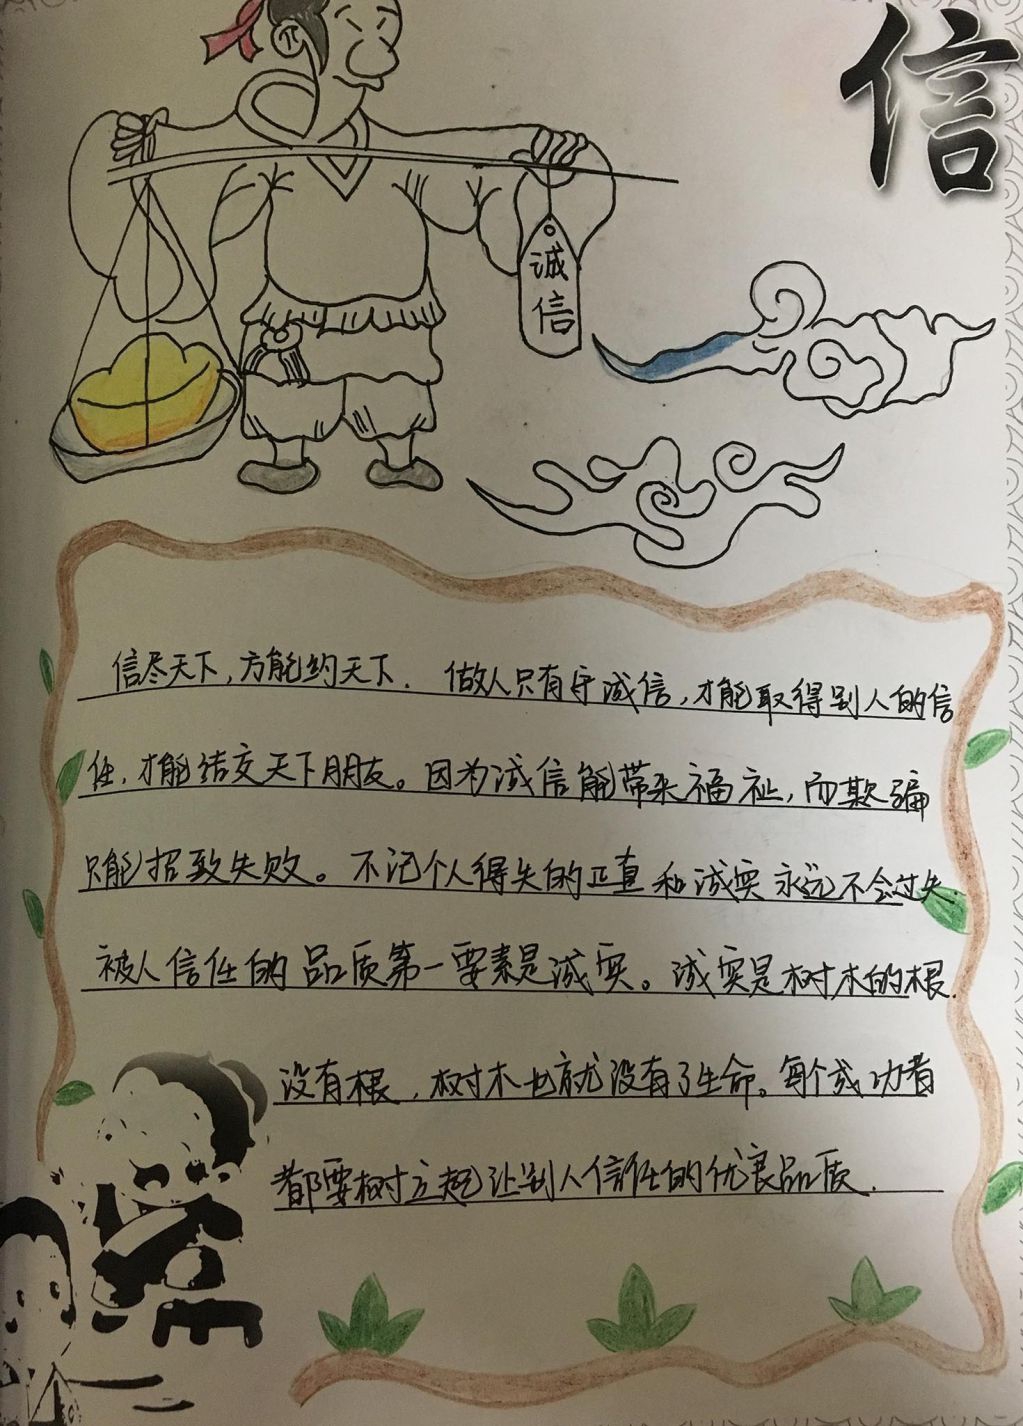 信
诚
信
信尽天下,方能约天下. 做人只有守诚信,才能取得别人的信
任,才能结交天下朋友。因为诚信能带来福祉,而欺骗
只能招致失败。不记个人得失的正直和诚实永远不会过失
被人信任的品质第一要素是诚实。诚实是树木的根.
没有根,树木也就没有了生命。每个成功者
都要树立起让别人信任的优良品质.